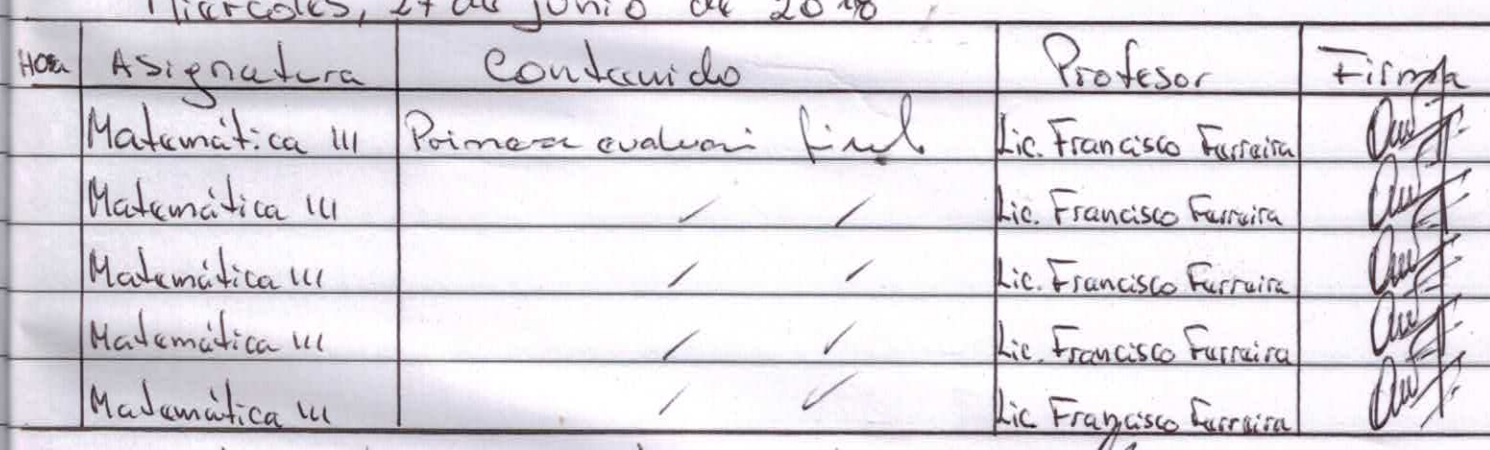 Miércoles, 27 de junio de 2018
Hora Asignatura Contenido Profesor Firma
Matemática III Primera final Lic. Francisco Ferreira
Matemática III / / Lic. Francisco Ferreira
Matemática III / / Lic. Francisco Ferreira
Matemática III / / Lic. Francisco Ferreira
Matemática III / / Lic. Francisco Ferreira